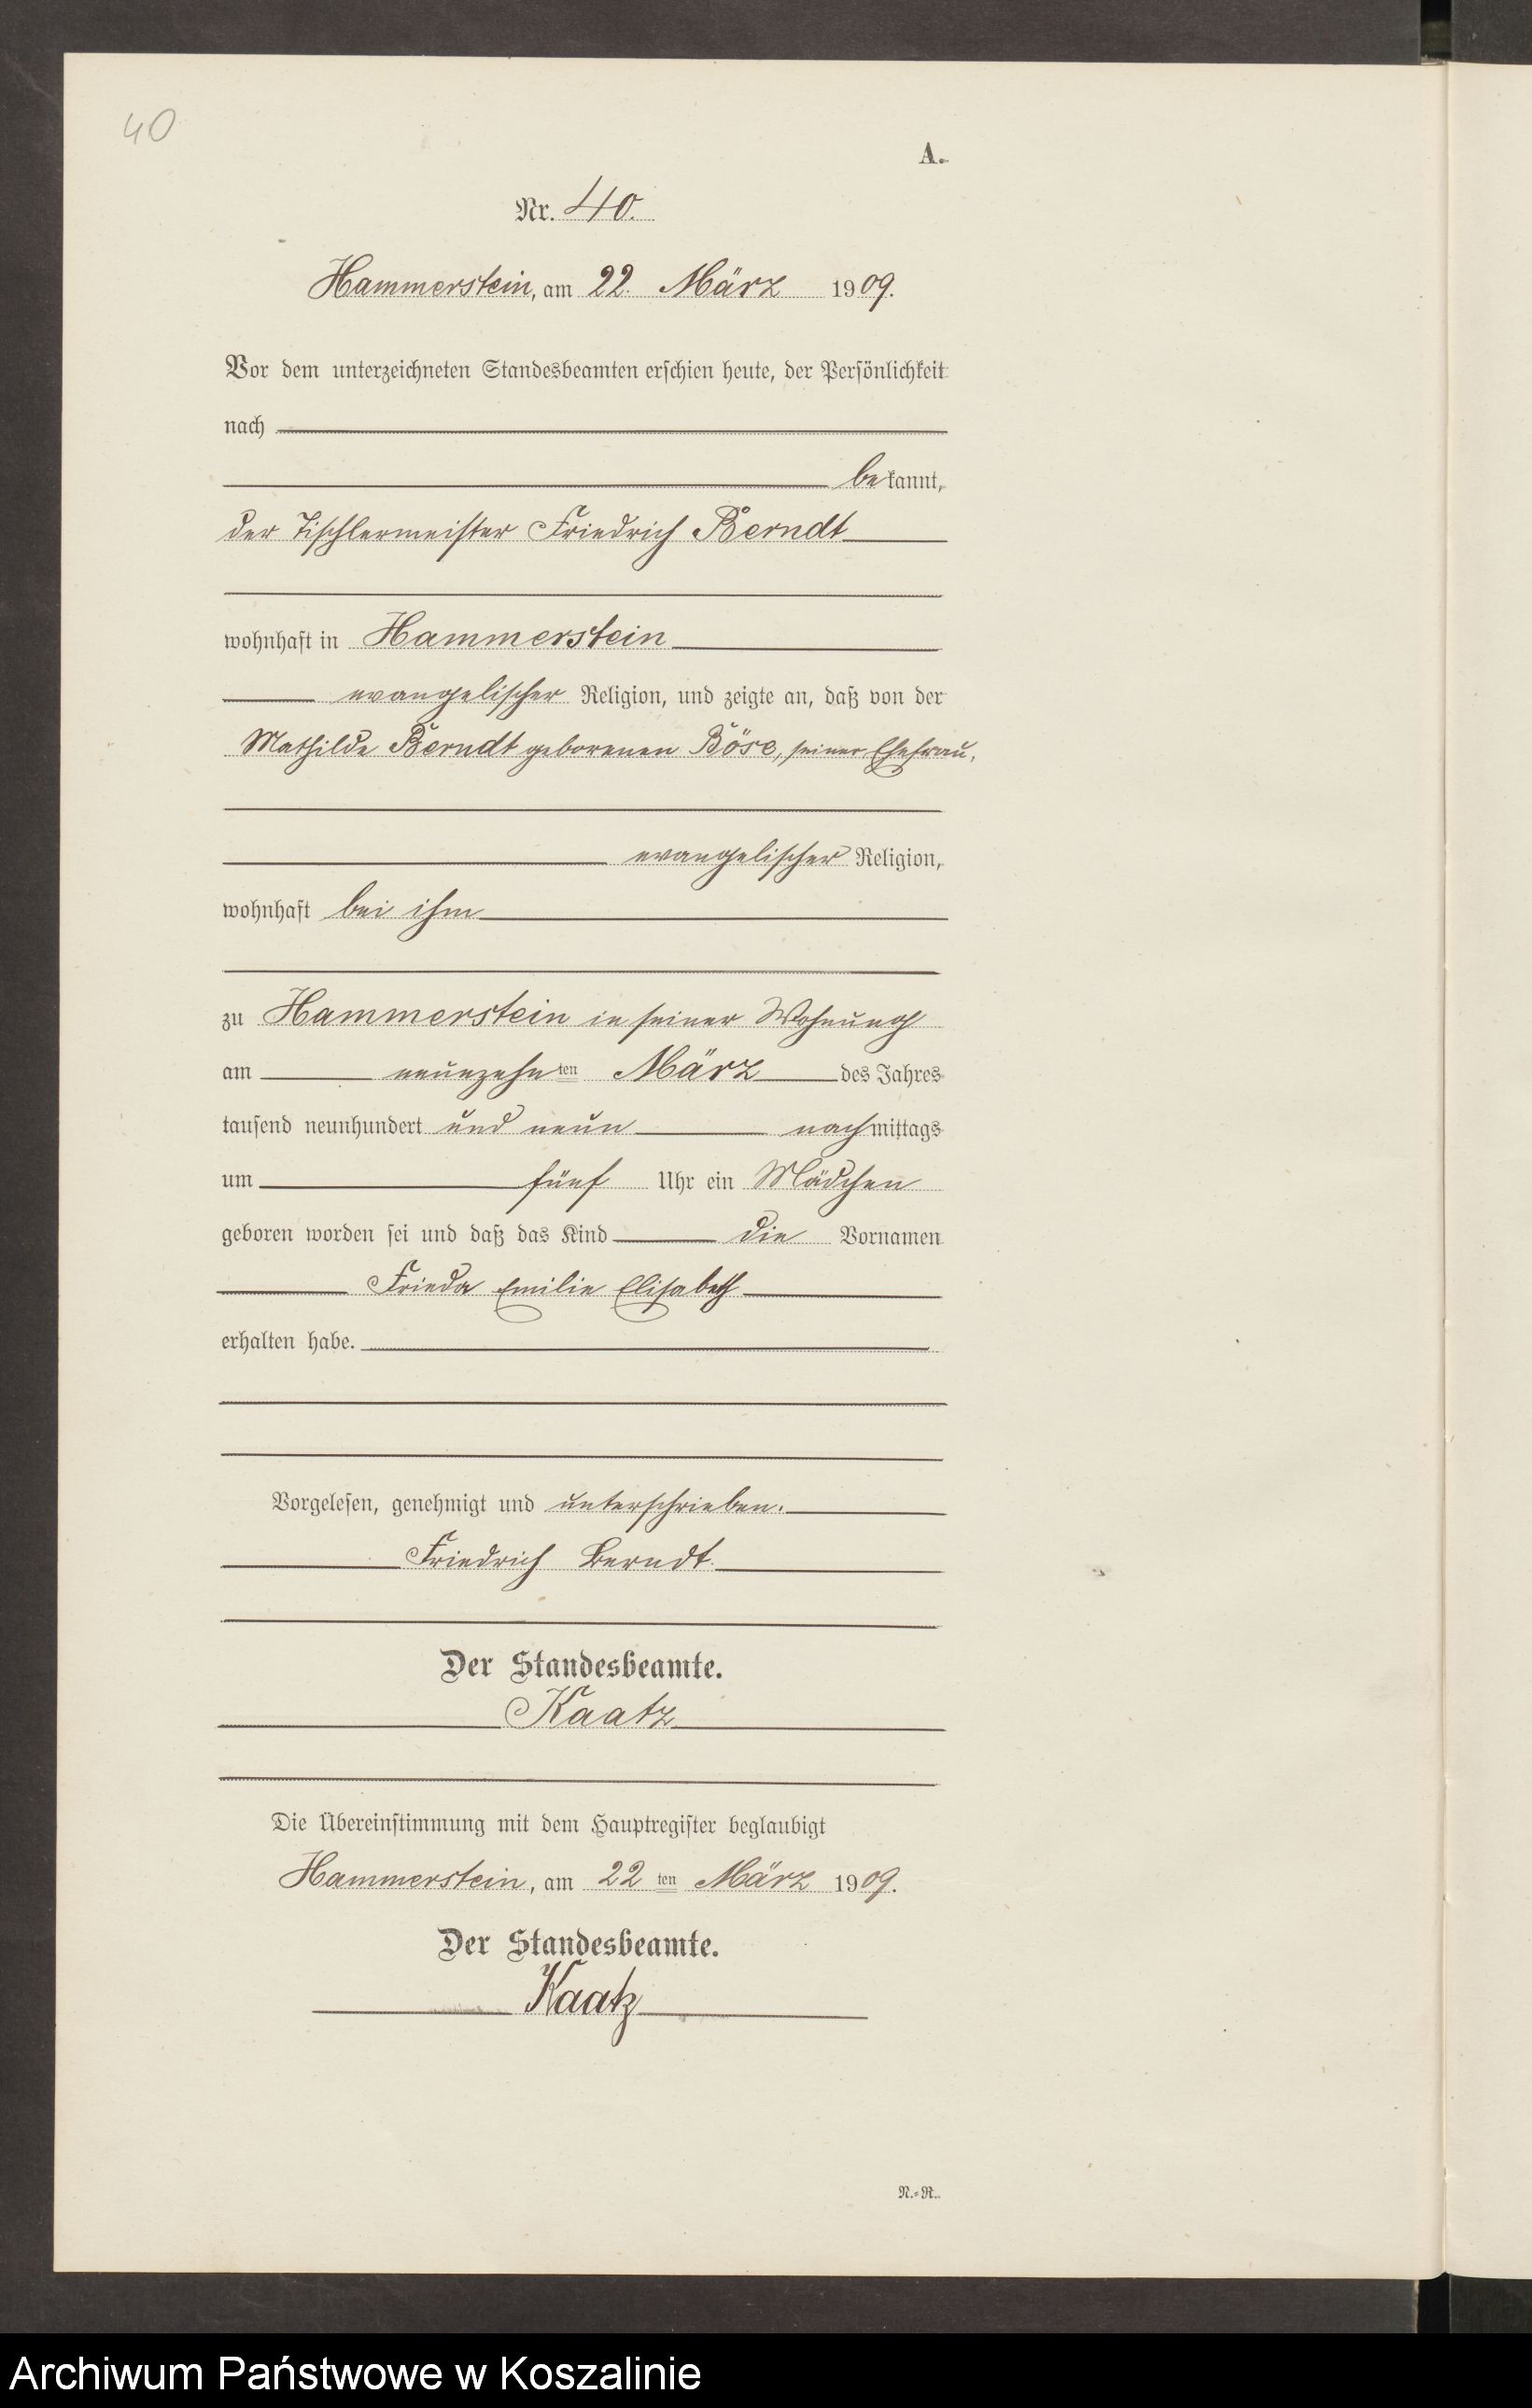 40
A.
Nr. 40.
Hammerstein, am 22. März 1909.
Vor dem unterzeichneten Standesbeamten erschien heute, der Persönlichkeit
nach
bekannt,
der Tischlermeister Friedrich Berndt
wohnhaft in Hammerstein
evangelischer Religion, und zeigte an, daß von der
Mathilde Berndt geborenen Böse, seiner Ehefrau,
evangelischer Religion,
wohnhaft bei ihm
zu Hammerstein in seiner Wohnung
am neunzehnten März des Jahres
tausend neunhundert und neun nachmittags
um fünf Uhr ein Mädchen
geboren worden sei und daß das Kind die Vornamen
Frieda Emilie Elisabeth
erhalten habe.
Vorgelesen, genehmigt und unterschrieben.
Friedrich Berndt.
Der Standesbeamte.
Kaatz
Die Übereinstimmung mit dem Hauptregister beglaubigt
Hammerstein, am 22 ten März 1909.
Der Standesbeamte.
Kaatz
N.=R.
Archiwum Państwowe w Koszalinie